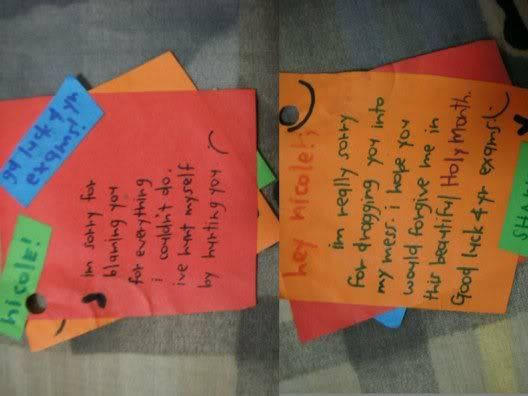 nicole!
gd luck 4 yr
exams!
im sorry for
blaming you
for everything
i couldn't do.
ive hurt myself
by hurting you
hey nicole!
im really sorry
for dragging you into
my mess. i hope you
would forgive me in
this beautiful Holy Month.
Good luck 4 yr exams!